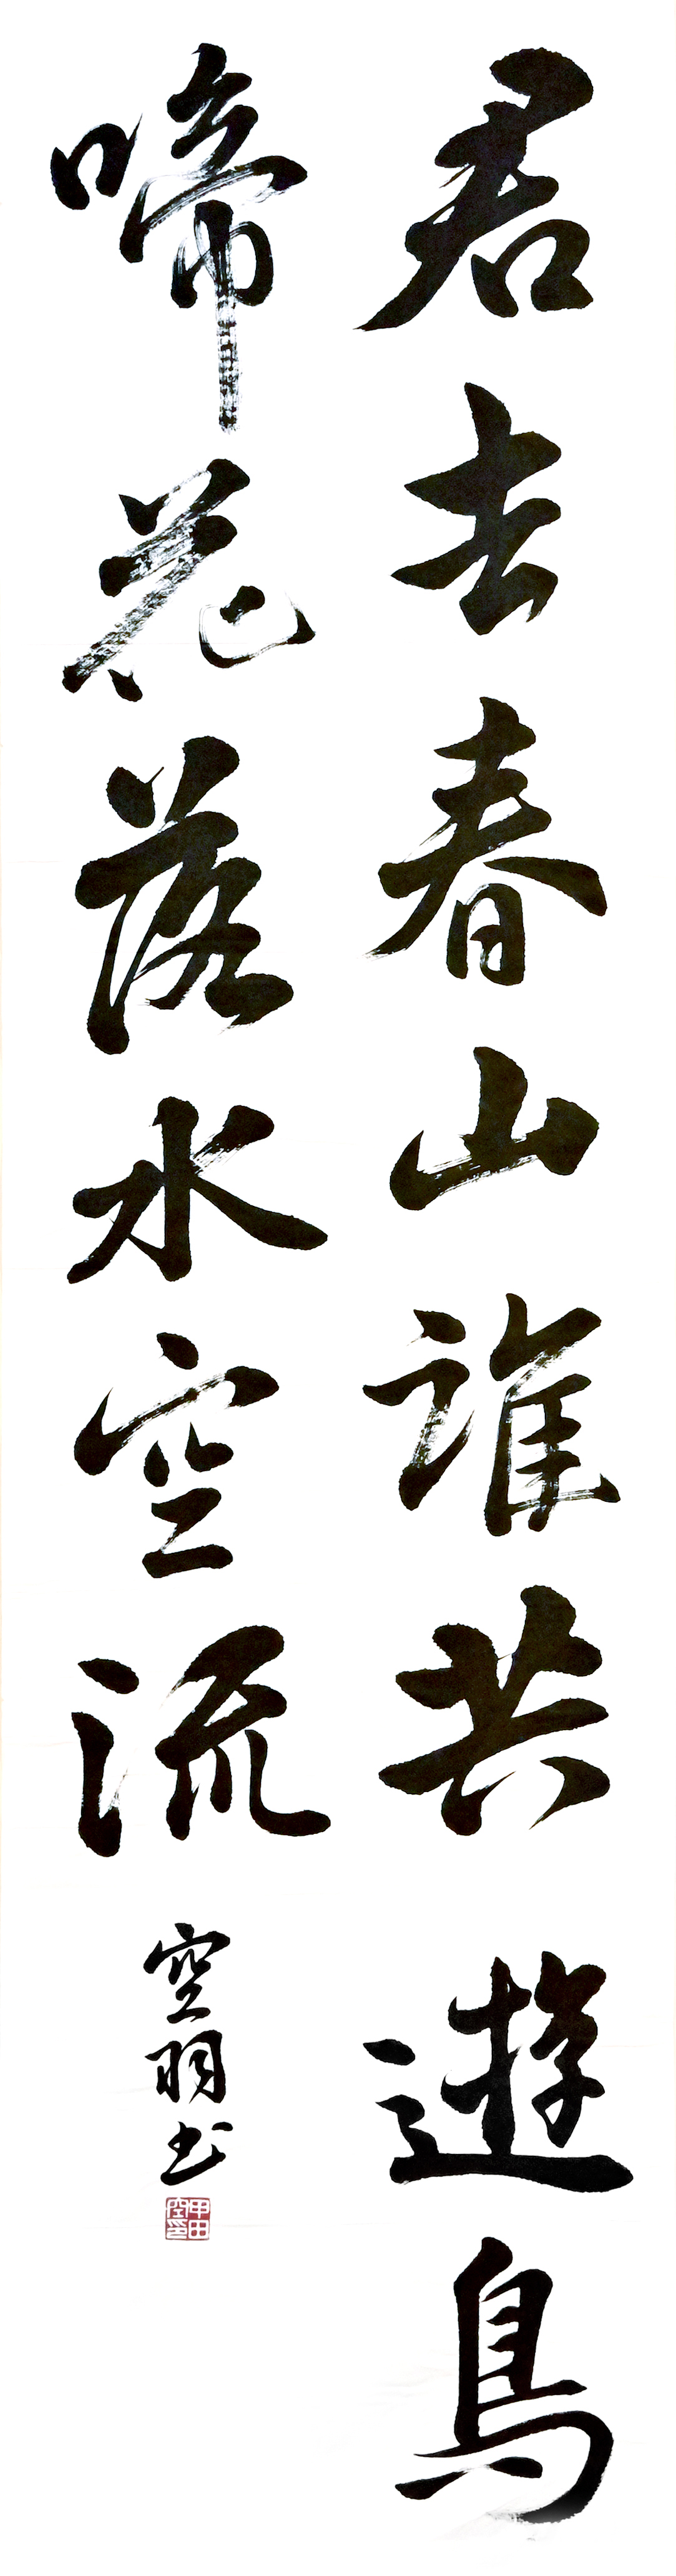 君去春山誰共遊鳥
啼花落水空流
空羽书
甲田空印